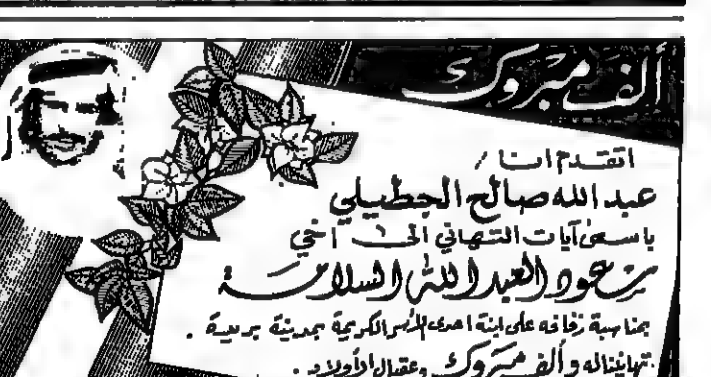 ألف مبروك
اتقدم انا /
عبدالله صالح الجطيلي
باسمى آيات التهاني الى أخي
سعود العبدالله السلامة
بمناسبة زفافه على ابنة احدى الأسر الكريمة بمدينة بريدة .
تهانينا له وألف مبروك وعقبال الأولاد .